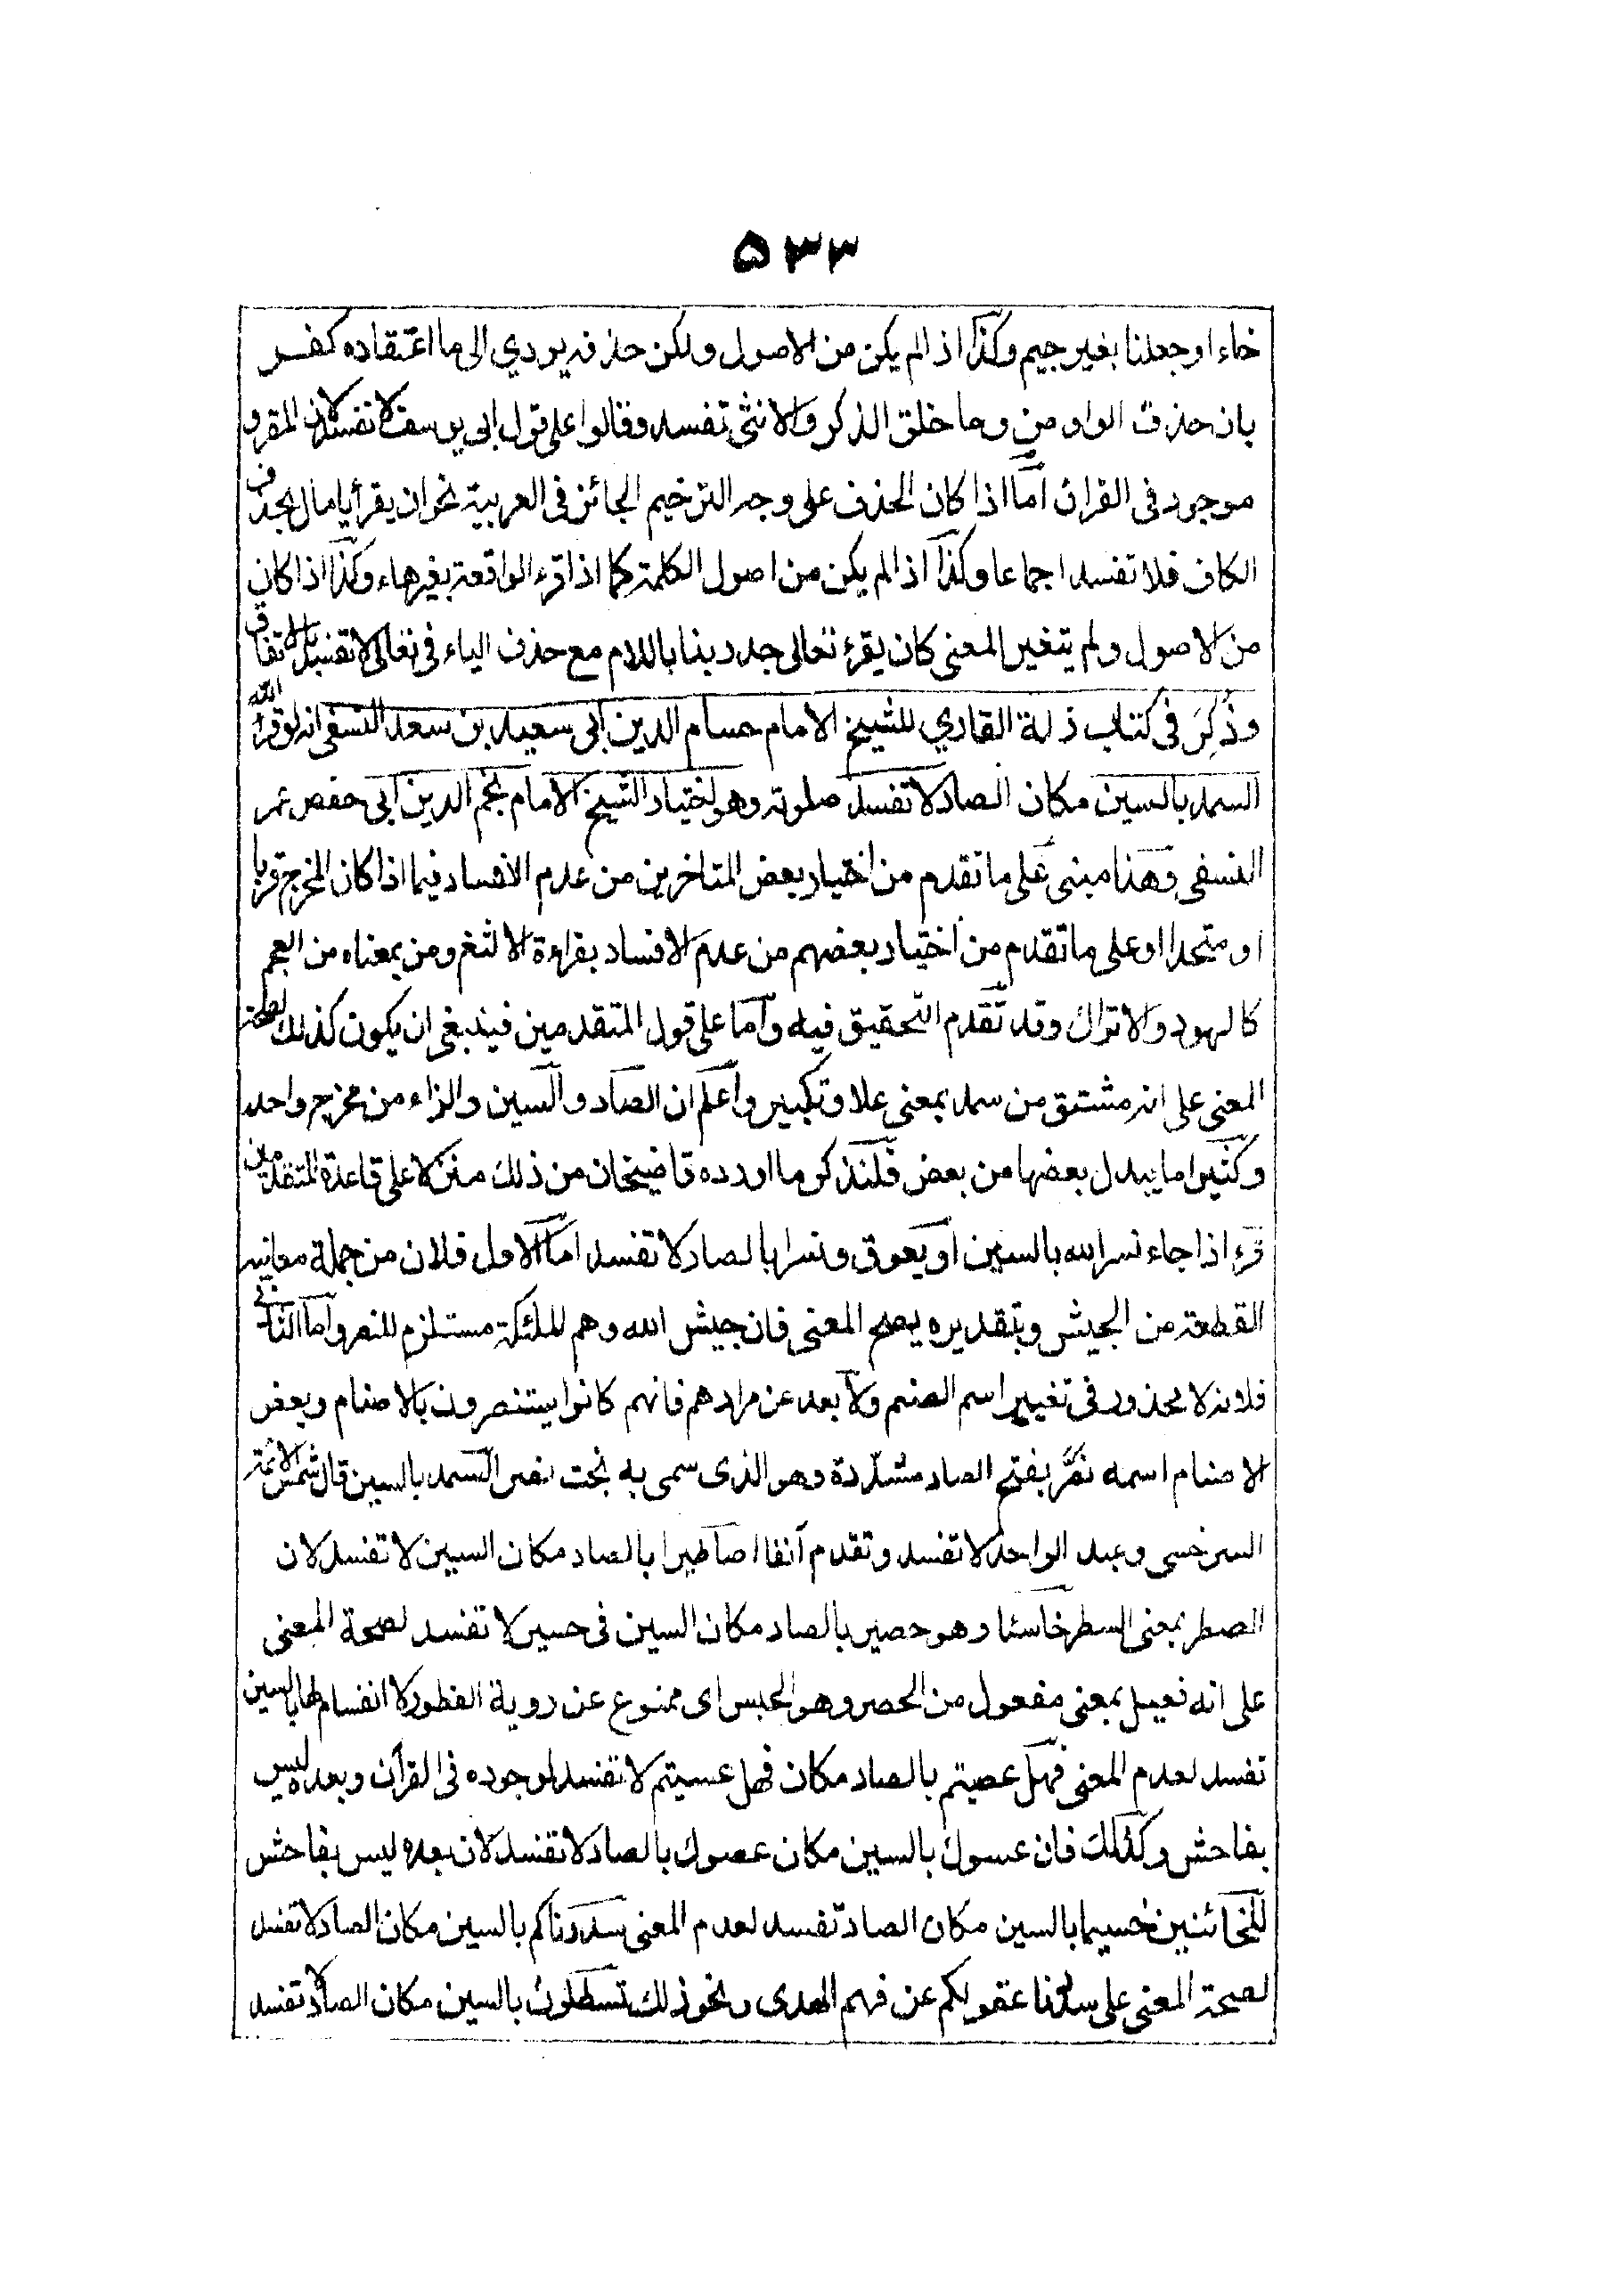 ۵۳۳
خاء او جعلنا بغير جيم وكذا اذا لم يكن من الاصول ولكن حذفه يودي الى ما اعتقاده كفر
بان حذف الواو من وما خلق الذكر والانثى تفسد وقالوا على قول ابي يوسف لا تفسد لان المقرو
موجود في القران اما اذا كان الحذف على وجه الترخيم الجائز في العربية نحو ان يقرأ يا مال بحذف
الكاف فلا تفسد اجماعا وكذا اذا لم يكن من اصول الكلمة كما اذا قرء الواقعة بغير هاء وكذا اذا كان
من الاصول ولم يتغير المعنى كان يقرء تعالى جد ربنا باللام مع حذف الياء في تعالى لا تفسد بالاتفاق
وذُكِرَ في كتاب زلة القاري للشيخ الامام حسام الدين ابى سعيد بن سعد النسفي انه لو قرأ الله
السمد بالسين مكان الصاد لا تفسد صلوته وهو اختيار الشيخ الامام نجم الدين ابى حفص عمر
النسفي وهذا مبنى على ما تقدم من اختيار بعض المتاخرين من عدم الافساد فيما اذا كان المخرج قريبا
او متحدا او على ما تقدم من اختيار بعضهم من عدم الافساد بقراءة الالثغ ومن بمعناه من العجم
كالهود والاتراك وقد تقدم التحقيق فيه واما على قول المتقدمين فينبغي ان يكون كذلك لصحة
المعنى على انه مشتق من سمد بمعنى علا وتكبر واعلم ان الصاد والسين والزاء من مخرج واحد
وكثيرا ما يبدل بعضها من بعض فلنذكر ما اورده قاضيخان من ذلك منزلا على قاعدة المتقدمين
قرء اذا جاء نسر الله بالسين او يعوق ونصرا بالصاد لا تفسد اما الاول فلان من جملة معانيه
القطعة من الجيش وبتقديره يصح المعنى فان جيش الله وهم الملئكة مستلزم للنصر واما الثاني
فلانه لا محذور في تغيير اسم الصنم ولا بعد عن مرادهم فانهم كانوا يستنصرون بالاصنام وبعض
الاصنام اسمه نصَّر بفتح الصاد مشدّدة وهو الذى سمى به بخت نصر السمد بالسين قال شمس الائمة
السرخسي وعبد الواحد لا تفسد وتقدم آنفا اصاطيرا بالصاد مكان السين لا تفسد لان
الصطر بمعنى السطر خاسئا وهو حصير بالصاد مكان السين في حسير لا تفسد لصحة المعنى
على انه فعيل بمعنى مفعول من الحصر وهو الحبس اى ممنوع عن روية الفطور لا انفسام لها بالسين
تفسد لعدم المعنى فهل عصيتم بالصاد مكان فهل عسيتم لا تفسد لوجوده في القرآن وبعده ليس
بفاحش وكذلك فان عسوك بالسين مكان عصوك بالصاد لا تفسد لان بعده ليس بفاحش
للخائنين خسيما بالسين مكان الصاد تفسد لعدم المعنى سددناكم بالسين مكان الصاد لا تفسد
لصحة المعنى على سددنا عقولكم عن فهم الهدى ونحو ذلك تسطلون بالسين مكان الصاد لا تفسد